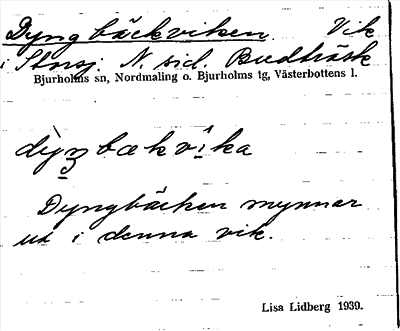 Dyngbäckviken. Vik
i Storsj. N. sid. Budträsk
Bjurholms sn, Nordmaling o. Bjurholms tg, Västerbottens l.
Dyngbäcken mynnar
ut i denna vik.
Lisa Lidberg 1939.